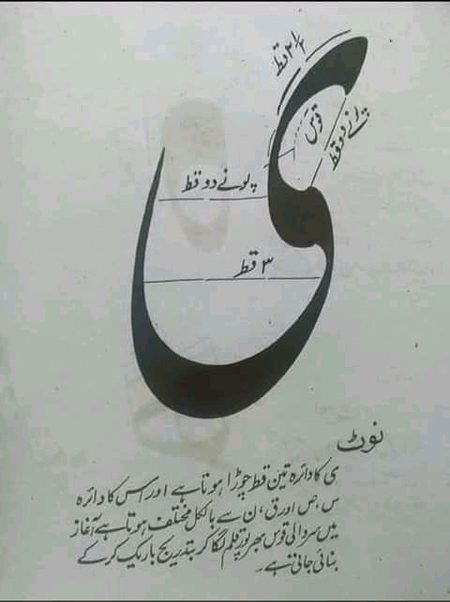 ۲/۱ ۲ قط
قوس
پونے دو قط
پونے دو قط
۳ قط
نوٹ
ی کا دائرہ تین قط چوڑا ہوتا ہے اور اس کا دائرہ
س، ص اور ق، ن سے بالکل مختلف ہوتا ہے آغاز
میں سر والی قوس بھرپور قلم لگا کر بتدریج باریک کر کے
بنائی جاتی ہے۔